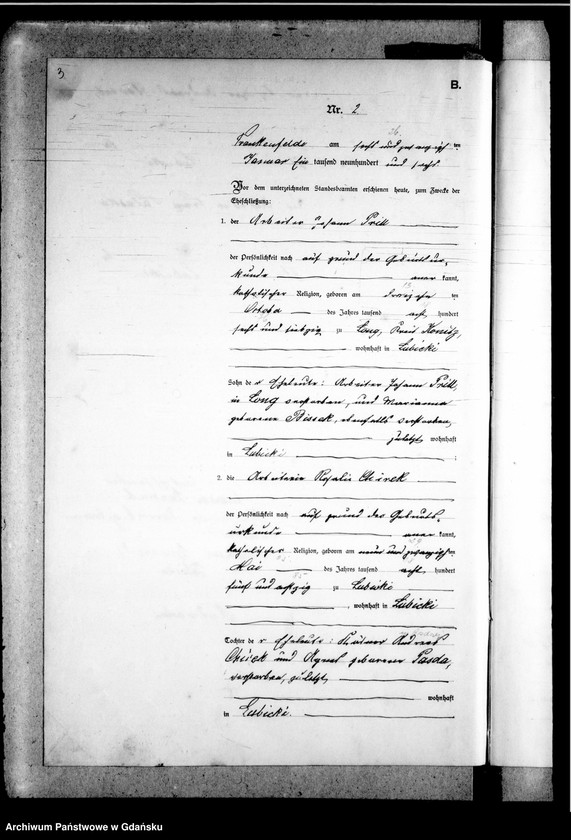 3
B.
Nr. 2
Frankenfelde am sechs und zwanzigsten
26.
Januar Ein tausend neunhundert und sechs
Vor dem unterzeichneten Standesbeamten erschienen heute, zum Zwecke der
Eheschließung:
1. der Arbeiter Johann Prill
der Persönlichkeit nach auf grund der Geburtsur-
kunde kannt,
katholischer Religion, geboren am ten
des Jahres tausend acht hundert
sechs und siebzig zu Long, Kreis Konitz,
wohnhaft in Lubicki
Sohn der Eheleute: Arbeiter Johann Prill
in Long verstorben, und Marianna
geborene ebenfalls verstorben,
zuletzt wohnhaft
in Lubicki
2. die Arbeiterin Rosalie
der Persönlichkeit nach auf grund des Geburts-
urkunde kannt,
katholischer Religion, geboren am neun und zwanzigsten
Mai des Jahres tausend acht hundert
fünf und achtzig zu Lubicki
, wohnhaft in Lubicki
Tochter der Eheleute: Andreas
und geborene Pasda,
verstorben, zuletzt,
wohnhaft
in Lubicki.
Archiwum Państwowe w Gdańsku